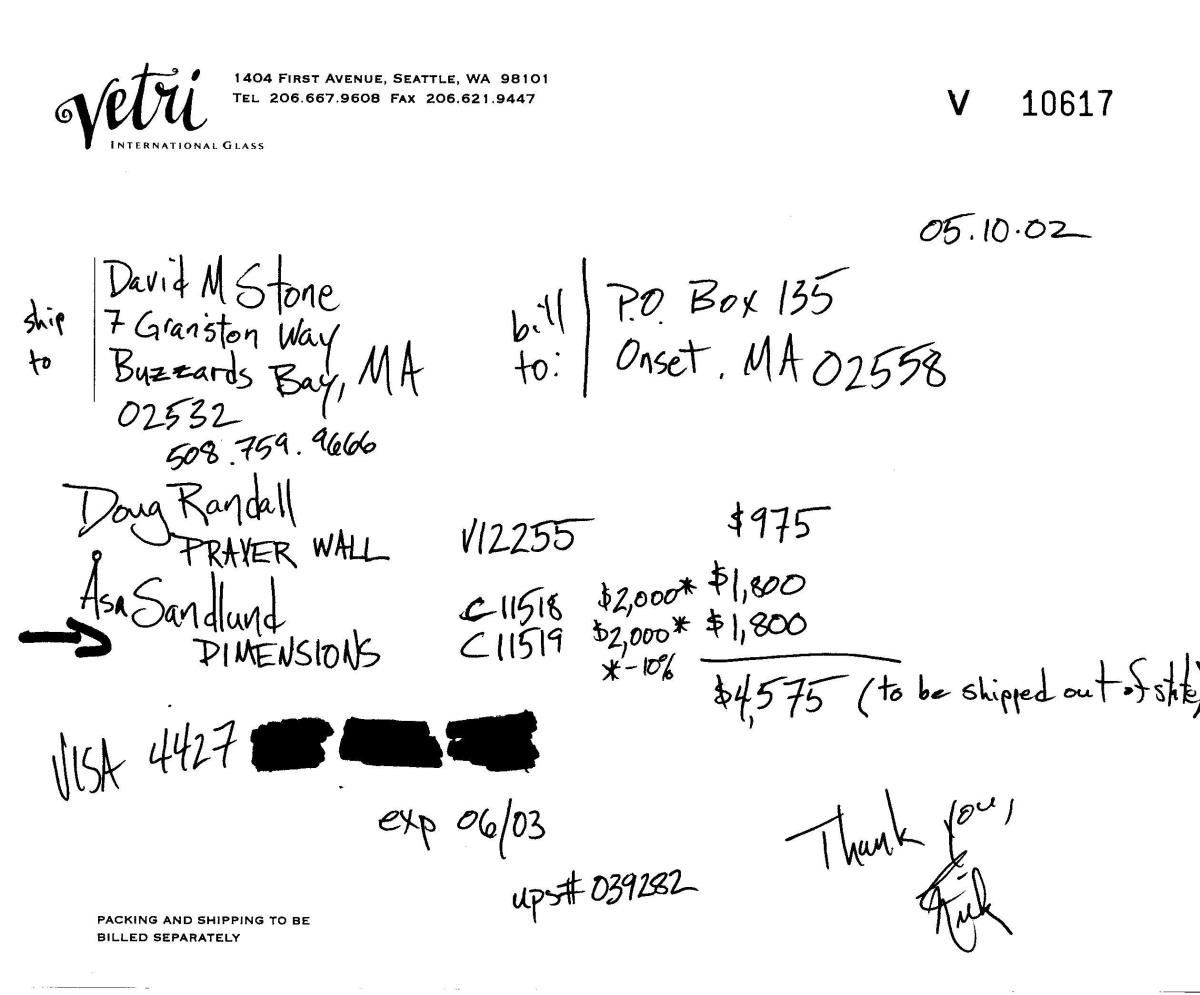 Vetri
INTERNATIONAL GLASS
1404 FIRST AVENUE, SEATTLE, WA 98101
TEL 206.667.9608 FAX 206.621.9447
V 10617
05.10.02
ship to
David M Stone
7 Graniston Way
Buzzards Bay, MA
02532
508.759.9666
bill to:
P.O. Box 135
Onset. MA 02558
Doug Randall
PRAYER WALL V12255 $975
Åsa Sandlund C11518 $2,000* $1,800
DIMENSIONS C11519 $2,000* $1,800
*-10%
$4,575 (to be shipped out of state)
VISA 4427
exp 06/03
ups# 039282
Thank you,
Rick
PACKING AND SHIPPING TO BE
BILLED SEPARATELY